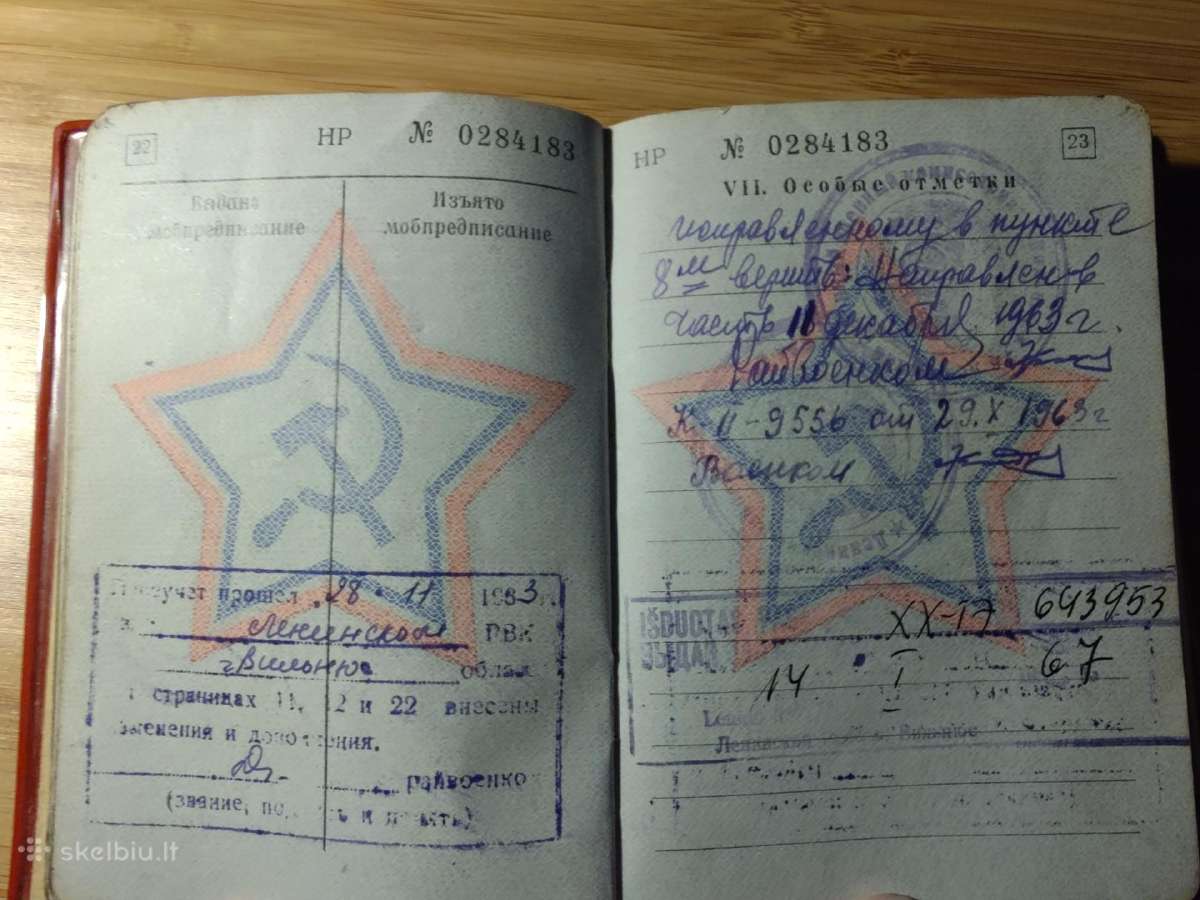 22
НР № 0284183
Выдано мобпредписание
Изъято мобпредписание
прошел 28 • 11 1983 г.
Ленинском РВК
г. Вильнюс облас
страницах 11, 12 и 22 внесены
изменения и дополнения.
райвоенко
(звание, подпись и печать)
НР № 0284183
23
VII. Особые отметки
исправленному в пункте
8м верить: Направлен в
часть 11 декабря 1963 г.
Райвоенком
К 11-9556 от 29.X 1963 г
Военком
IŠDUOTAS
ВЫДАН
XX-ІТ 643953
14 • I 67
Ленинский Вильнюс
skelbiu.lt